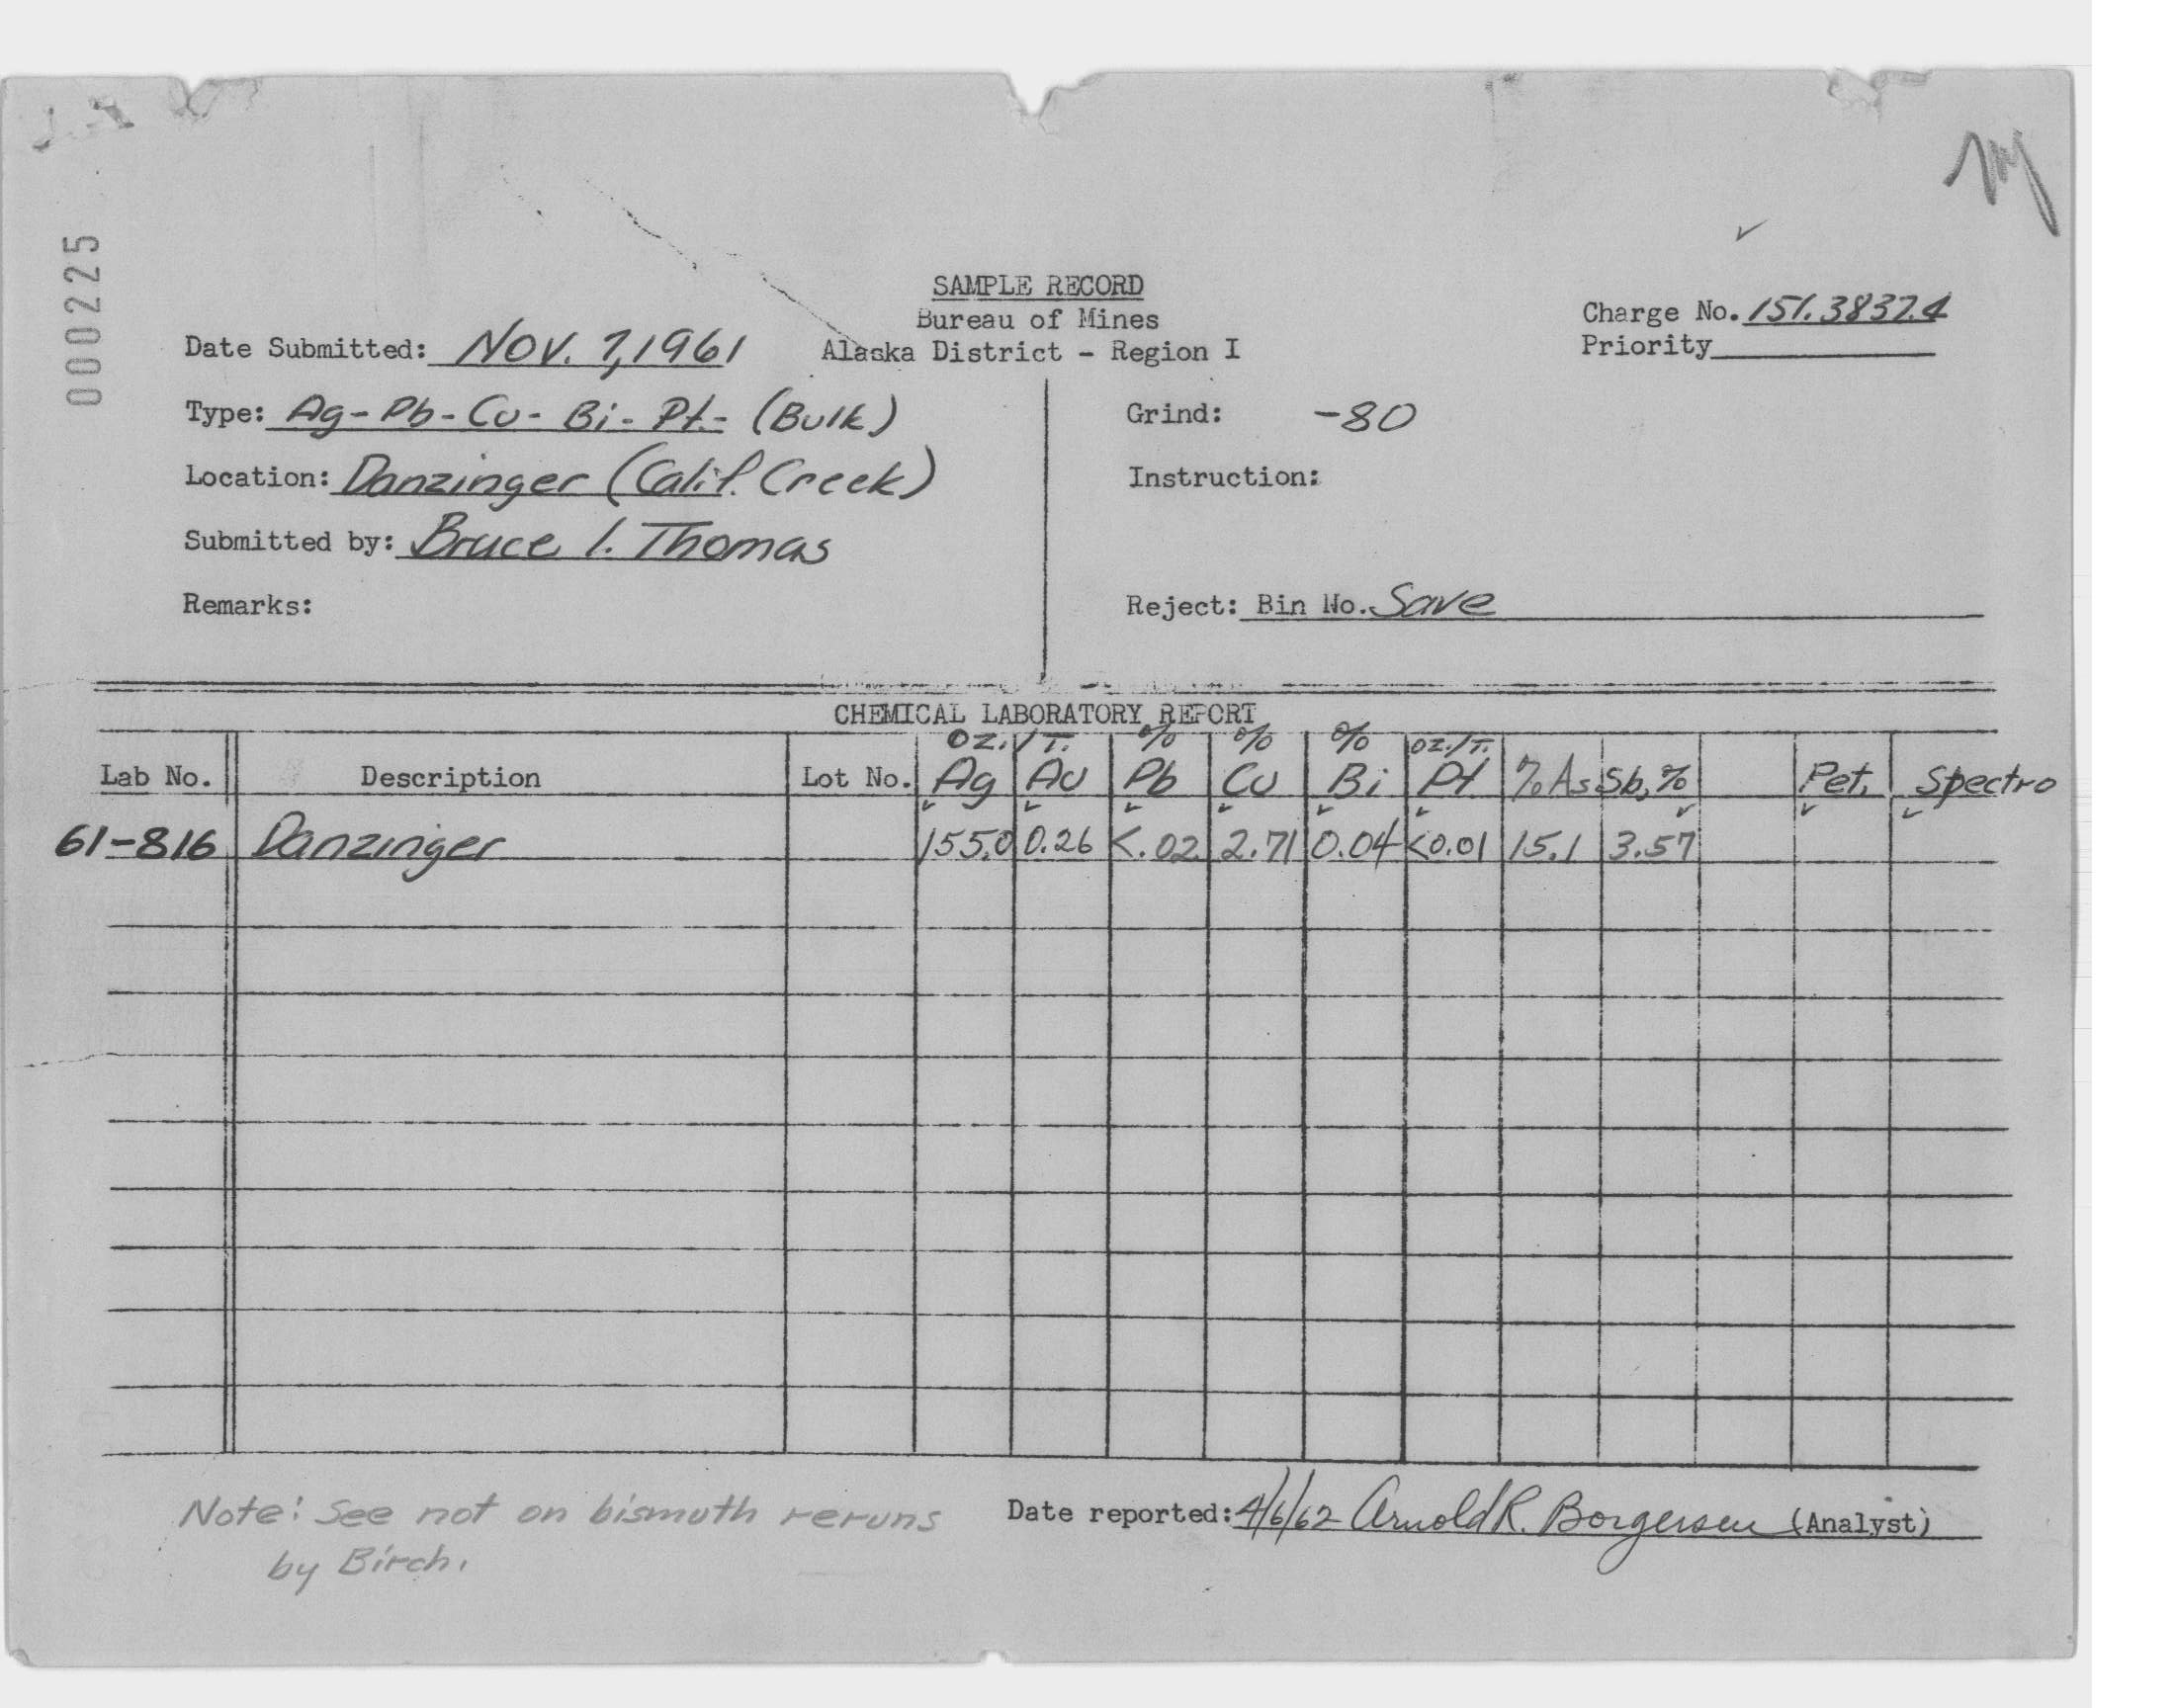 000225
SAMPLE RECORD
Bureau of Mines
Alaska District - Region I
Charge No. 151.3837.4
Priority
Date Submitted: Nov. 7, 1961
Type: Ag-Pb-Cu-Bi-Pt- (Bulk)
Grind: -80
Location: Danzinger (Calif. Creek)
Instruction:
Submitted by: Bruce I. Thomas
Remarks:
Reject: Bin No. Save
CHEMICAL LABORATORY REPORT
oz./T. % % % oz./T.
Lab No. Description Lot No. Ag Au Pb Cu Bi Pt % As Sb, % Pet. Spectro
61-816 Danzinger 155.0 0.26 <.02 2.71 0.04 <0.01 15.1 3.57
Note: See not on bismuth reruns
by Birch.
Date reported: 4/6/62 Arnold R. Borgersen (Analyst)